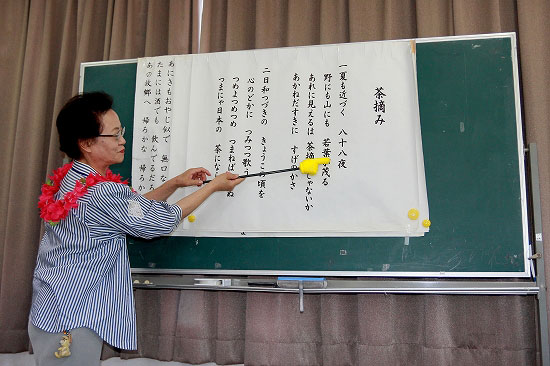 茶摘み
一夏も近づく 八十八夜
野にも山にも 若葉が茂る
あれに見えるは 茶摘 じゃないか
あかねだすきに すげのかさ
二日和つづきの きょうこの頃を
心のどかに つみつつ歌う
つめよつめつめ つまねばな ぬ
つまにゃ日本の 茶にな
あにきもおやじ似で 無口な
たまには酒でも 飲んでるだろ
あの故郷へ 帰ろかな 帰ろか